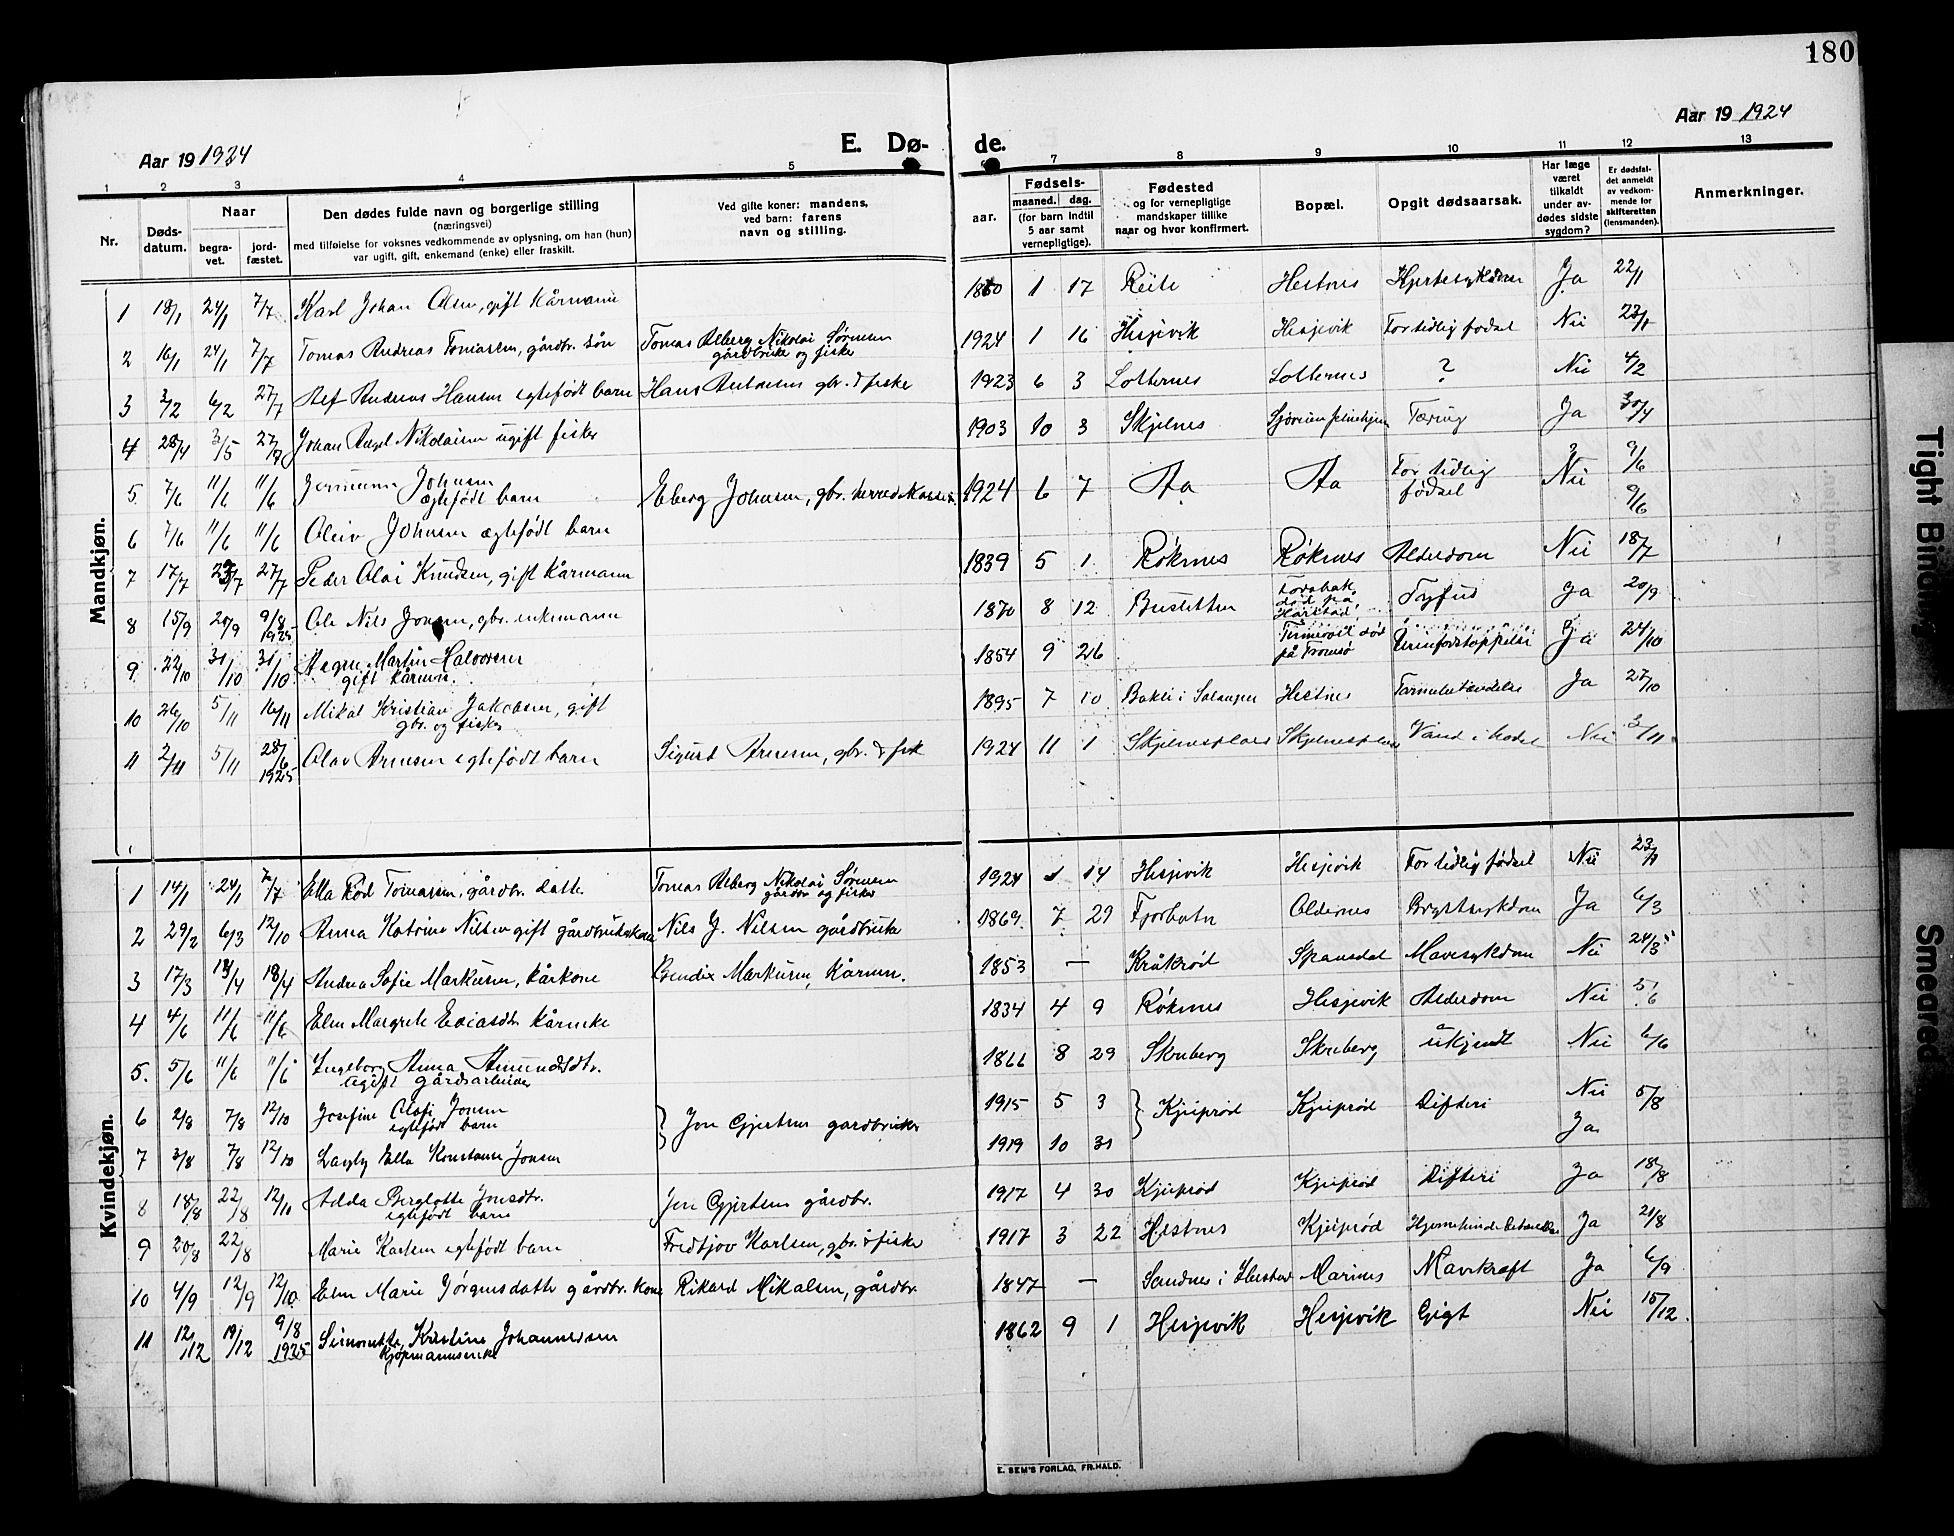 180
Aar 19 1924
E. Dø-
de.
Aar 19 1924
1 2 3 4 5
6 7 8 9 10 11 12 13
Nr.
Døds-
datum.
Naar
begra-
vet.
jord-
fæstet.
Den dødes fulde navn og borgerlige stilling
(næringsvei)
med tilføielse for voksnes vedkommende av oplysning, om han (hun)
var ugift, gift, enkemand (enke) eller fraskilt.
Ved gifte koner: mandens,
ved barn: farens
navn og stilling.
aar.
Fødsels-
maaned. dag.
(for barn indtil
5 aar samt
vernepligtige).
Fødested
og for vernepligtige
mandskaper tillike
naar og hvor konfirmert.
Bopæl.
Opgit dødsaarsak.
Har læge
været
tilkaldt
under av-
dødes sidste
sygdom?
Er dødsfal-
det anmeldt
av vedkom-
mende for
skifteretten
(lensmanden).
Anmerkninger.
Mandkjøn.
1 18/1 24/1 7/7 Karl Johan Olsen, gift kårmann 1860 1 17 Hestnes Ja 22/1
2 16/1 24/1 7/7 Tomas Andreas Tomassen, gårdbr. søn Tomas Alberg Nikolai Sørensen
gårdbruker og fisker
1924 1 16 Hesjevik Hesjevik For tidlig fødsel Nei 23/1
3 3/2 6/2 27/7 Alf Andreas Hansen egtefødt barn Hans Antonsen gbr. & fisker 1923 6 3 ? Nei 4/2
4 28/4 3/5 27/7 Johan Angel Nikolaisen ugift fisker 1903 10 3 Skjelnes Tæring Ja 30/4
5 7/6 11/6 11/6 Johnsen
egtefødt barn
Eberg Johnsen, gbr. herredskasser. 1924 6 7 Aa Aa For tidlig
fødsel
Nei 9/6
9/6
6 7/6 11/6 11/6 Oleiv Johnsen egtefødt barn
7 17/7 27/7 27/7 Peder Olai Knudsen, gift kårmann 1839 5 1 Røknes Røknes Alderdom Nei 18/7
8 15/9 20/9 9/8
1925
Ole Nils Jonsen, gbr. enkemann 1870 8 12 Fossbak,
død på
Harstad.
Tyfus Ja 20/9
9 22/10 31/10 31/10 Martin Halvorsen
gift kårmn.
1854 9 26 død
på Tromsø
Urinforstoppelse Ja 24/10
10 26/10 5/11 16/11 Mikal Kristian Jakobsen, gift
gbr. og fisker
1895 7 10 Bakli i Salangen Hestnes Tarmbetændelse Ja 27/10
11 2/11 5/11 28/6
1925
Olav Arnesen egtefødt barn Sigurd Arnesen, gbr. & fisk 1924 11 1 Skjelnesplass Skjelnesplass Vand i hodet Nei 3/11
Kvindekjøn.
1 14/1 24/1 7/7 Ella Rød Tomassen, gårdbr. datter Tomas Alberg Nikolai Sørensen
gårdbr og fisker
1924 1 14 Hesjevik Hesjevik For tidlig fødsel Nei 23/1
2 29/2 6/3 12/10 Anna Katrine Nilsen gift gårdbrukskone Nils J. Nilsen gårdbruker 1869 7 29 Fjorbotn Oldernes Brystsykdom Ja 6/3
3 17/3 18/4 Andrea Sofie Markusen, kårkone Bendix Markusen, kårmn. 1853 — Kråkrød Spansdal Mavesykdom Nei 24/3
4 4/6 11/6 11/6 Elen Margrete Eliasdtr kårenke 1834 4 9 Røknes Hesjevik Alderdom Nei 5/6
5. 5/6 11/6 11/6 Ingeborg Anna Amundsdtr.
ugift gårdsarbeider
1866 8 29 Skreberg Skreberg ukjendt Nei 6/6
6 2/8 7/8 12/10 Josefine Olafi Jonsen
egtefødt barn
Jon Gjertsen gårdbruker 1915 5 3 Kjeiprød Kjeiprød Difteri Nei 5/8
7 3/8 7/8 12/10 Ella Konstanse Jonsen 1919 10 31 Ja
8 18/8 22/8 12/10 Alda Berglotte Jonsdtr.
egtefødt barn
Jon Gjertsen gårdbr. 1917 4 30 Kjeiprød Kjeiprød Difteri Ja 18/8
9 20/8 22/8 Marie Karlsen egtefødt barn Fredtjov Karlsen, gbr. & fisker 1917 3 22 Hestnes Kjeiprød Hjernehindebetændelse Ja 21/8
10 4/9 12/9 12/10 Elen Marie Jørgensdatter gårdbr. kone Rikard Mikalsen, gårdbr. 1847 — Sandnes i Ibestad Marines Mavekræft Ja 6/9
11 12/12 19/12 9/8
1925
Simonette Kristine Johannessen
kjøpmannsenke
1862 9 1 Hesjevik Hesjevik Gigt Nei 15/12
E. SEM'S FORLAG, FR.HALD.
Tight Binding
Smeared